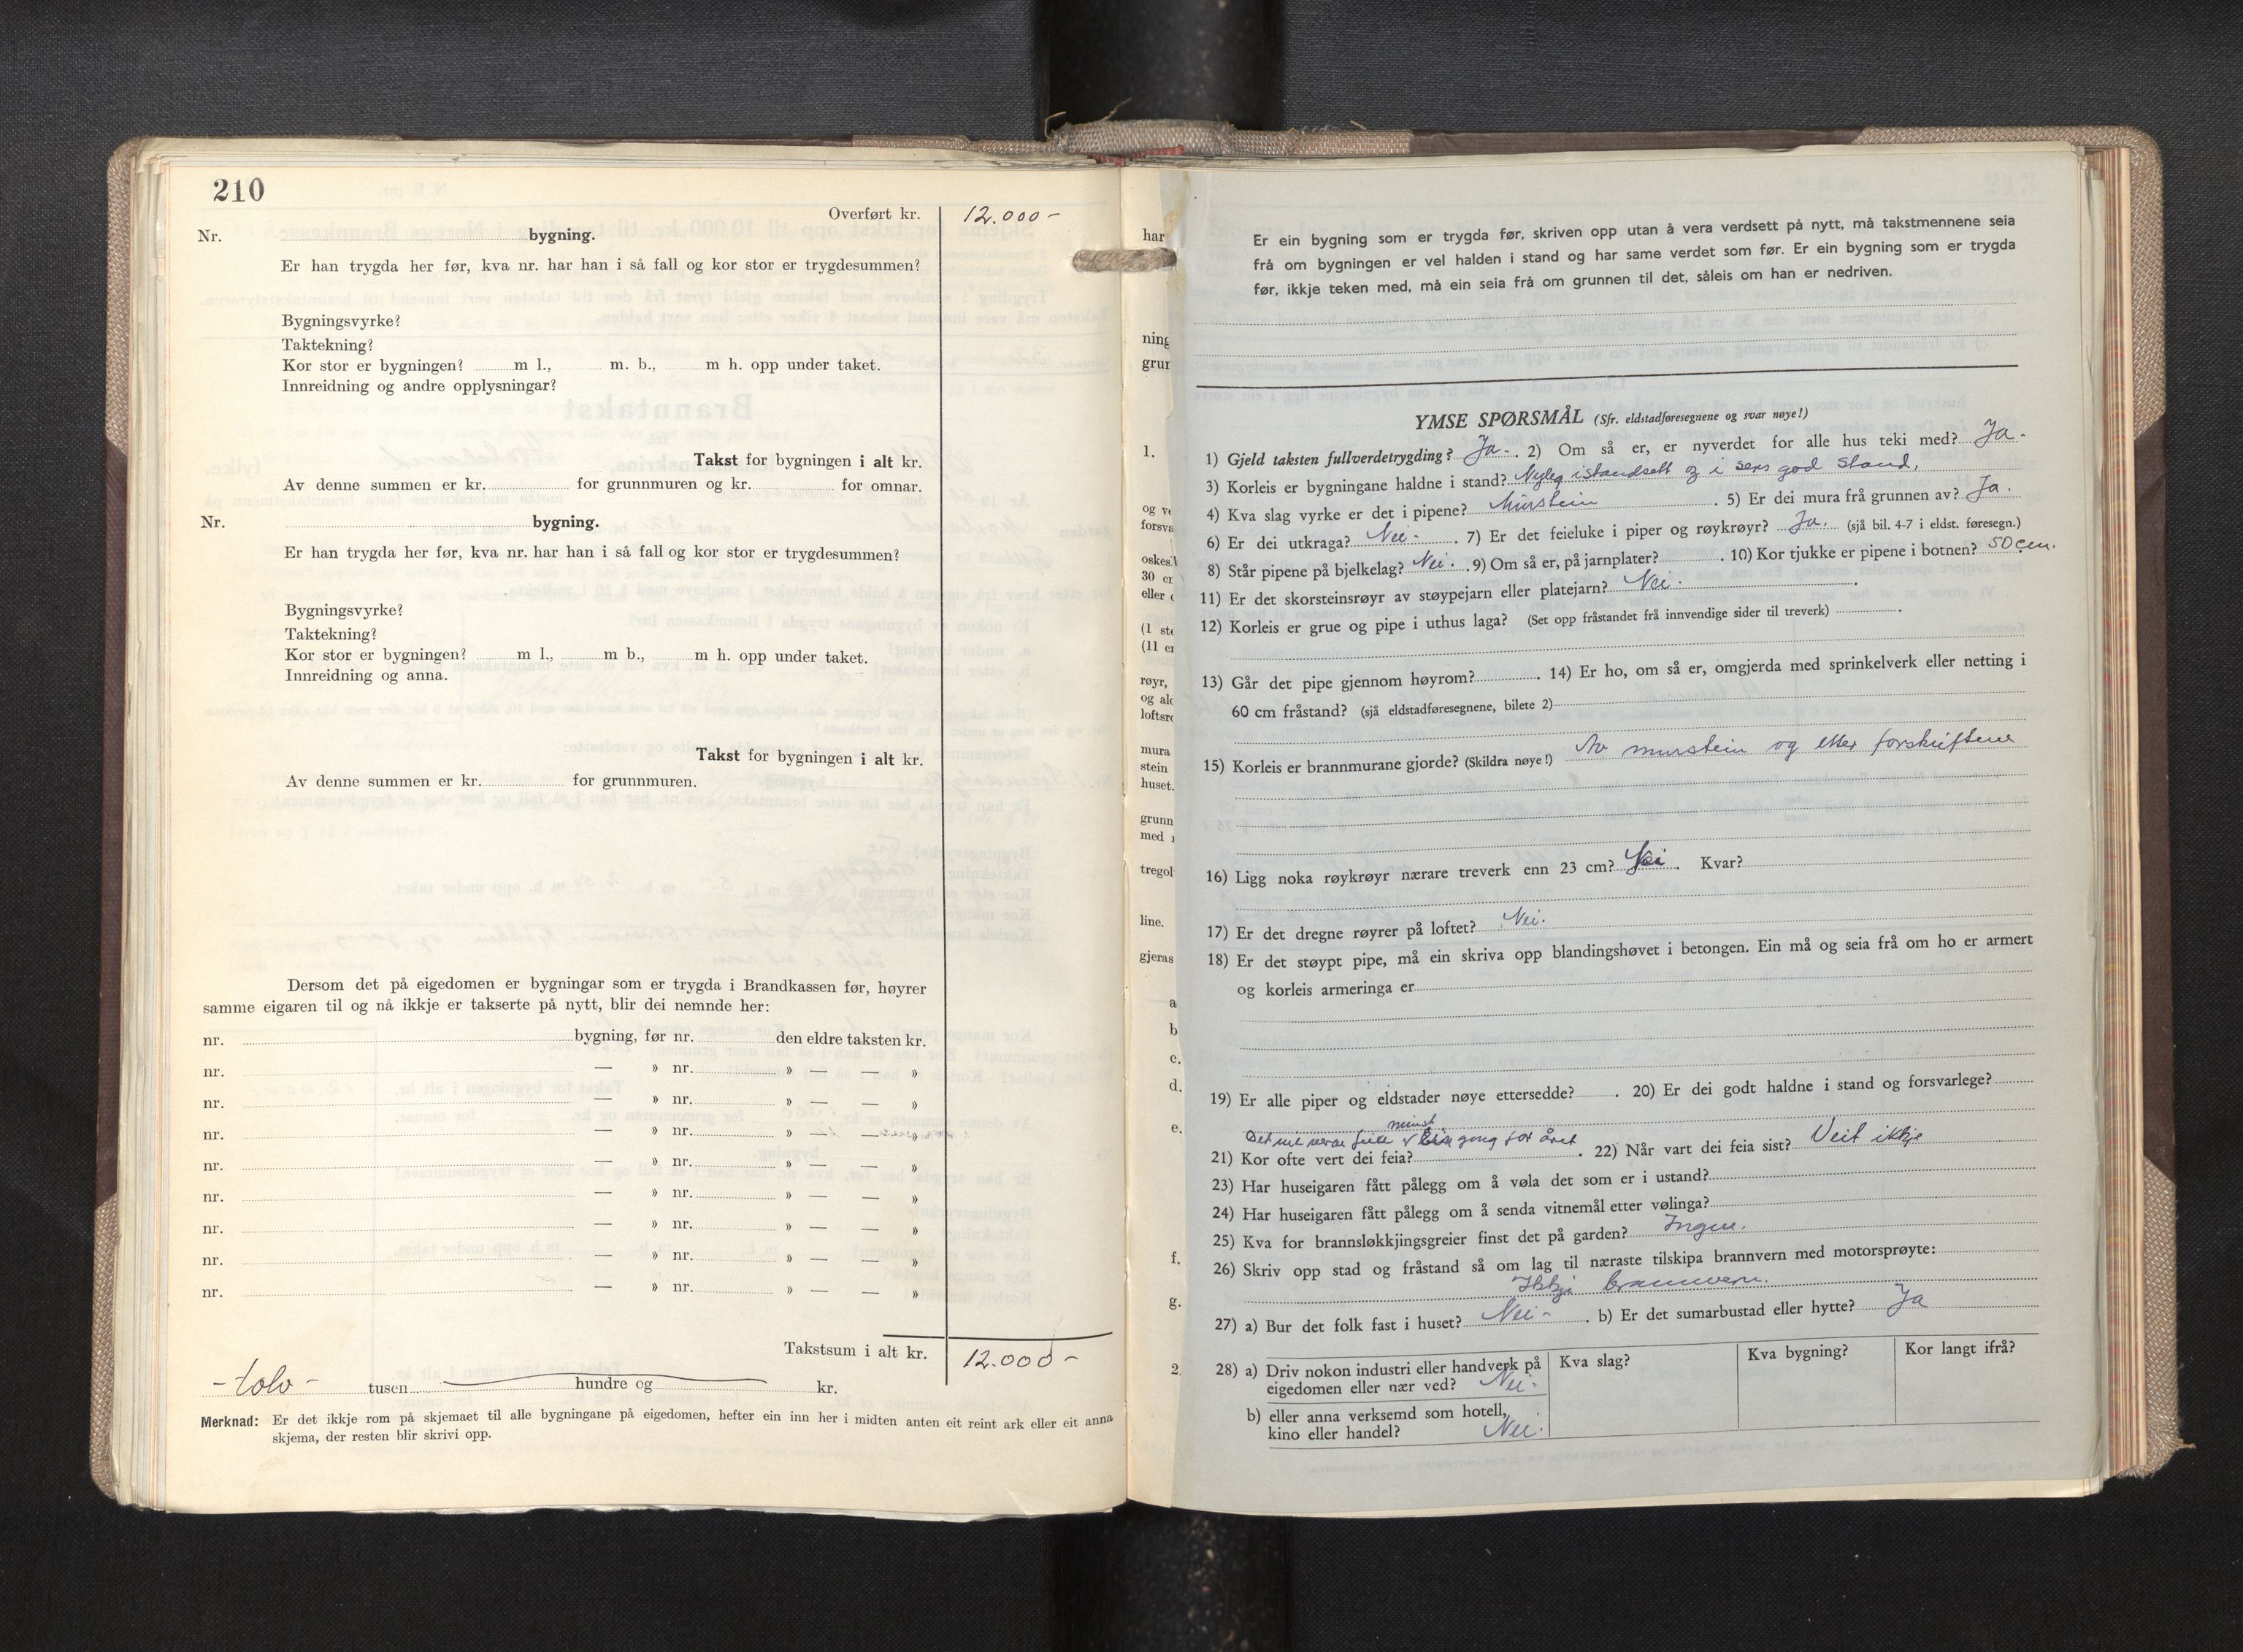 210
Overført kr. 12.000-
Nr. bygning.
Er han trygda her før, kva nr. har han i så fall og kor stor er trygdesummen?
Bygningsvyrke?
Taktekning?
Kor stor er bygningen? m l., m. b., m h. opp under taket.
Innreidning og andre opplysningar?
Takst for bygningen i alt kr.
Av denne summen er kr. for grunnmuren og kr. for omnar.
Nr. bygning.
Er han trygda her før, kva nr. har han i så fall og kor stor er trygdesummen?
Bygningsvyrke?
Taktekning?
Kor stor er bygningen? m l., m b., m h. opp under taket.
Innreidning og anna.
Takst for bygningen i alt kr.
Av denne summen er kr. for grunnmuren.
Dersom det på eigedomen er bygningar som er trygda i Brandkassen før, høyrer
samme eigaren til og nå ikkje er takserte på nytt, blir dei nemnde her:
nr. bygning, før nr. den eldre taksten kr.
nr. — » nr. » — — »
nr. — » nr. » — — »
nr. — » nr. » — — »
nr. — » nr. » — — »
nr. — » nr. » — — »
nr. — » nr. » — — »
nr. — » nr. » — — »
nr. — » nr. » — — »
Takstsum i alt kr. 12.000-
- tolv - tusen hundre og kr.
Merknad: Er det ikkje rom på skjemaet til alle bygningane på eigedomen, hefter ein inn her i midten anten eit reint ark eller eit anna
skjema, der resten blir skrivi opp.
har
ning
grun
1.
og ve
forsva
oskes
30 cm
eller
(1 ste
(11 cm
røyr,
og
loftsr
mura
stein
huset.
grunn
med
tregol
line.
gjeras
a
b
c.
d.
e.
f.
g.
2.
Er ein bygning som er trygda før, skriven opp utan å vera verdsett på nytt, må takstmennene seia
frå om bygningen er vel halden i stand og har same verdet som før. Er ein bygning som er trygda
før, ikkje teken med, må ein seia frå om grunnen til det, såleis om han er nedriven.
YMSE SPØRSMÅL (Sfr. eldstadføresegnene og svar nøye!)
1) Gjeld taksten fullverdetrygding? Ja-. 2) Om så er, er nyverdet for alle hus teki med? Ja-
3) Korleis er bygningane haldne i stand? Nyleg istandsett og i sers god stand,
4) Kva slag vyrke er det i pipene? Murstein . 5) Er dei mura frå grunnen av? Ja.
6) Er dei utkraga? Nei- . 7) Er det feieluke i piper og røykrøyr? Ja. (sjå bil. 4-7 i eldst. føresegn.)
8) Står pipene på bjelkelag? Nei. . 9) Om så er, på jarnplater? . 10) Kor tjukke er pipene i botnen? 50 cm.
11) Er det skorsteinsrøyr av støypejarn eller platejarn? Nei. .
12) Korleis er grue og pipe i uthus laga? (Set opp fråstandet frå innvendige sider til treverk) .
13) Går det pipe gjennom høyrom? . 14) Er ho, om så er, omgjerda med sprinkelverk eller netting i
60 cm fråstand? (sjå eldstadføresegnene, bilete 2)
15) Korleis er brannmurane gjorde? (Skildra nøye!) Av murstein og etter forskriftene
16) Ligg noka røykrøyr nærare treverk enn 23 cm? Nei . Kvar?
17) Er det dregne røyrer på loftet? Nei.
18) Er det støypt pipe, må ein skriva opp blandingshøvet i betongen. Ein må og seia frå om ho er armert
og korleis armeringa er
19) Er alle piper og eldstader nøye ettersedde? . 20) Er dei godt haldne i stand og forsvarlege?
minst
Det vil verae feie v ein gong for året
21) Kor ofte vert dei feia? . 22) Når vart dei feia sist? Veit ikkje
23) Har huseigaren fått pålegg om å vøla det som er i ustand?
24) Har huseigaren fått pålegg om å senda vitnemål etter vølinga?
25) Kva for brannsløkkjingsgreier finst det på garden? Ingen.
26) Skriv opp stad og fråstand så om lag til næraste tilskipa brannvern med motorsprøyte:
Ikkje brannvern.
27) a) Bur det folk fast i huset? Nei- . b) Er det sumarbustad eller hytte? Ja
28) a) Driv nokon industri eller handverk på Kva slag? Kva bygning? Kor langt ifrå?
eigedomen eller nær ved? Nei-
b) eller anna verksemd som hotell,
kino eller handel? Nei.